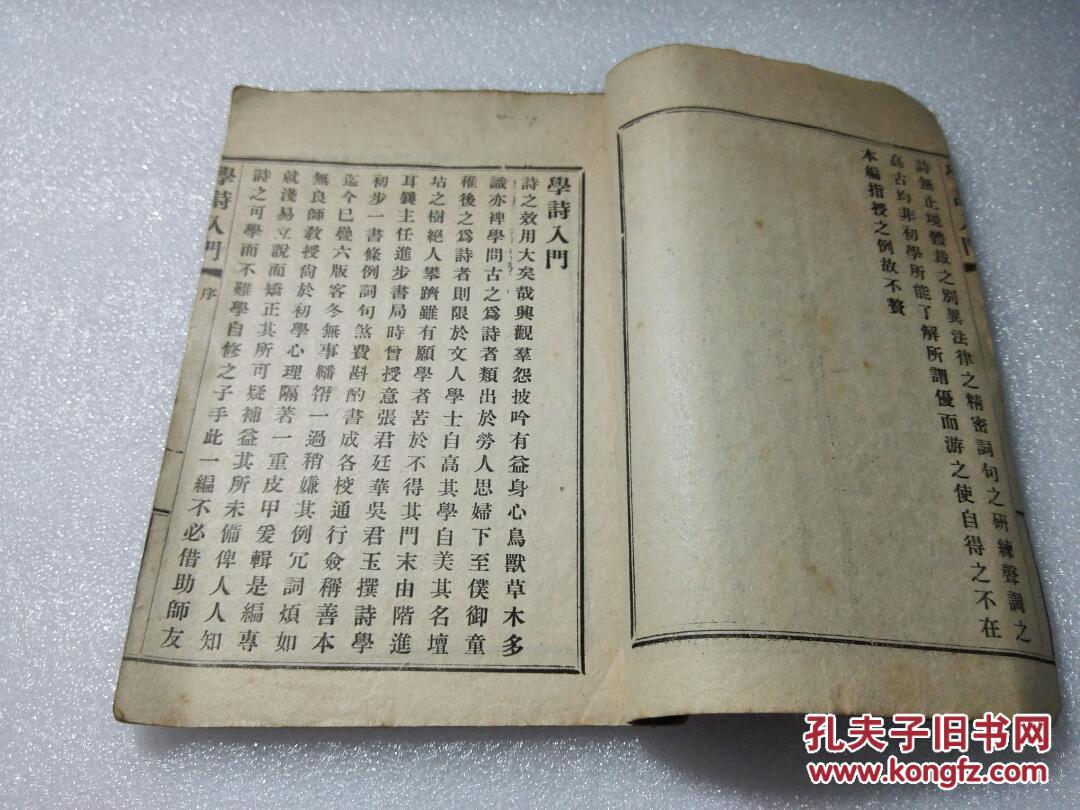 詩無止境體裁之別異法律之精密詞句之研練聲調之
高古均非初學所能了解所謂優而游之使自得之不在
本編指授之例故不贅
學詩入門
詩之效用大矣哉興觀羣怨披吟有益身心鳥獸草木多
識亦裨學問古之爲詩者類出於勞人思婦下至僕御童
稚後之爲詩者則限於文人學士自高其學自美其名壇
坫之樹絕人攀躋雖有願學者苦於不得其門末由階進
耳主任進步書局時曾授意張君廷華吳君玉撰詩學
初步一書條例詞句煞費斟酌書成各校通行僉稱善本
迄今已疊六版客冬無事繙一過稍嫌其例冗詞煩如
無良師教授尙於初學心理隔著一重皮甲爰輯是編專
就淺易立說而矯正其所可疑補益其所未備俾人人知
詩之可學而不難學自修之子手此一編不必借助師友
學詩入門 序
孔夫子旧书网
www.kongfz.com